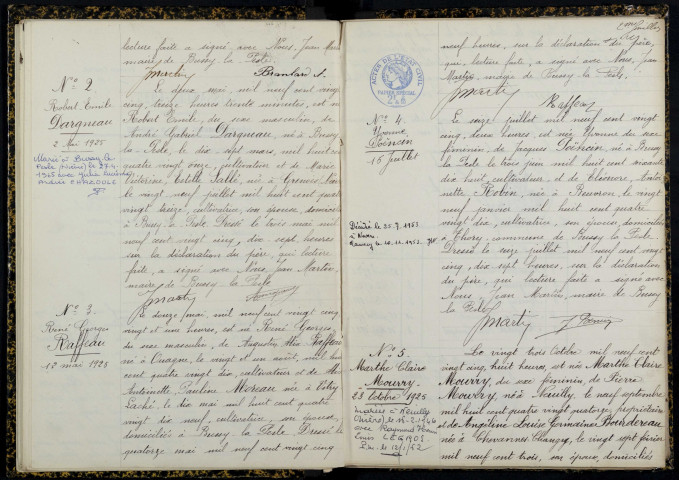 lecture faite a signé, avec Nous, Jean Martin
maire de Bussy la Pesle
Martin
Brantard A.
No 2
Robert Emile
Dargneau
2 Mai 1925
Marié à Bussy la
Pesle (Nièvre) le 27.4.
1965 avec Julia
Le deux mai, mil neuf cent vingt
cinq, treize heures trente minutes, est né
Robert Emile, du sexe masculin, de
André Gabriel Dargneau, né à Bussy
la Pesle, le dix sept mars, mil huit cent
quatre vingt onze, cultivateur et de Marie
Victorine, Estelle Sallé, née à Grenois,
le vingt neuf juillet mil huit cent quatre
vingt treize, cultivatrice, son épouse, domiciliés
à Bussy la Pesle. Dressé le trois mai mil
neuf cent vingt cinq, dix sept heures
sur la déclaration du père, qui lecture
faite, a signé avec Nous, Jean Martin,
maire de Bussy la Pesle
Martin
No 3.
René Georges
Raffeau
12 mai 1925
Le douze mai, mil neuf cent vingt cinq
vingt et une heures, est né René Georges,
du sexe masculin, de Augustin Raffeau
né à Ouagne, le vingt et un août, mil huit
cent quatre vingt dix, cultivateur et de
Antoinette, Pauline Moreau née à Vitry
Laché, le dix mai mil huit cent quatre
vingt dix neuf, cultivatrice, son épouse,
domiciliés à Bussy la Pesle. Dressé le
quatorze mai mil neuf cent vingt cinq
neuf heures, sur la déclaration du père,
qui, lecture faite, a signé avec Nous, Jean
Martin, maire de Bussy la Pesle.
Martin
Raffeau
ACTES DE L'ETAT CIVIL
PAPIER SPECIAL
No 4
Yvonne
Poincin
16 Juillet
Décédé le 25.7.1953
à Nevers
Le seize juillet mil neuf cent vingt
cinq, deux heures, est née Yvonne du sexe
féminin, de Jacques Poincin, né à Bussy
la Pesle le trois juin mil huit cent soixante
dix huit, cultivateur, et de Eléonore, Antoi-
nette Robin, née à Beuvron, le vingt
neuf janvier mil huit cent quatre
vingt dix, cultivatrice, son épouse, domiciliés
à Thory, commune de Bussy la Pesle
Dressé le seize juillet mil neuf cent vingt
cinq, dix sept heures, sur la déclaration
du père, qui lecture faite a signé avec
Nous, Jean Martin, maire de Bussy
la Pesle
Martin
No 5.
Marthe Claire
Mourry
23 Octobre 1925
mariée à Neuilly
(Nièvre) le
avec Raymond
Louis LEGROS
Le vingt trois Octobre mil neuf cent
vingt cinq, huit heures, est née Marthe Claire
Mourry, du sexe féminin, de Pierre
Mourry, né à Neuilly, le neuf septembre
mil huit cent quatre vingt quatorze, propriétaire
et de Angéline Louise Germaine Bourdereau
née à Chevannes Changy, le vingt sept février
mil neuf cent trois, son épouse, domiciliés